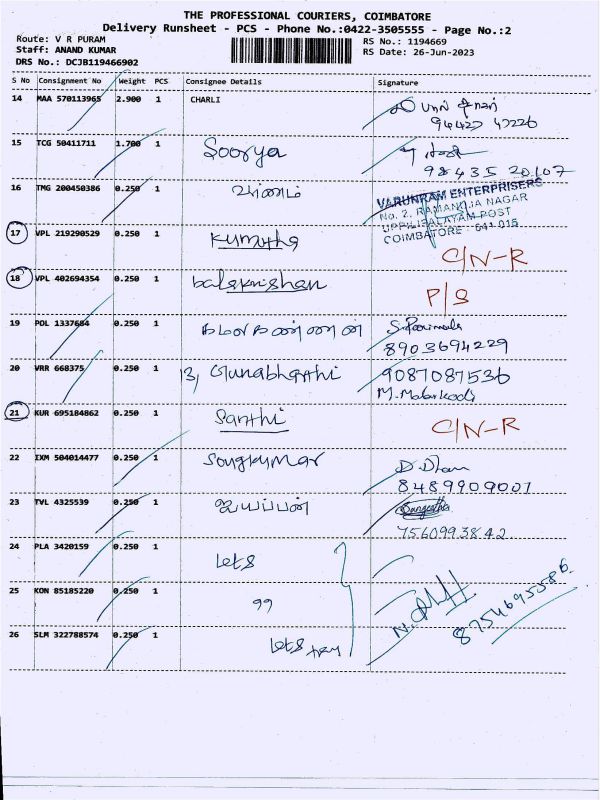 THE PROFESSIONAL COURIERS, COIMBATORE
Delivery Runsheet - PCS - Phone No.:0422-3505555 - Page No.:2
Route: V R PURAM
RS No.: 1194669
Staff: ANAND KUMAR
RS Date: 26-Jun-2023
DRS No.: DCJB119466902
S No Consignment No Weight PCS Consignee Details Signature
14 MAA 570113965 2.900 1 CHARLI
94427 47226
15 TCG 50411711 1.700 1 Soorya
98435 20107
16 TMG 200450386 0.250 1
VARUNRAM ENTERPRISERS
No. 2, RAMANUJA NAGAR
UPPILIPALAYAM POST
COIMBATORE - 641 015
17 VPL 219290529 0.250 1 Kumutha C/N-R
18 VPL 402694354 0.250 1 balakrishnan P/S
19 PDL 1337684 0.250 1 கமலகண்ணன்
8903694229
20 VRR 668375 0.250 1 13, Gunabharathi 9087087536
21 KUR 695184862 0.250 1 Santhi C/N-R
22 IXM 504014477 0.250 1
8489909001
23 TVL 4325539 0.250 1 ஐயப்பன் Sangeetha
7560993842
24 PLA 3420159 0.250 1 Lets
25 KON 85185220 0.250 1 99
8754695586
26 SLM 322788574 0.250 1 Lets try